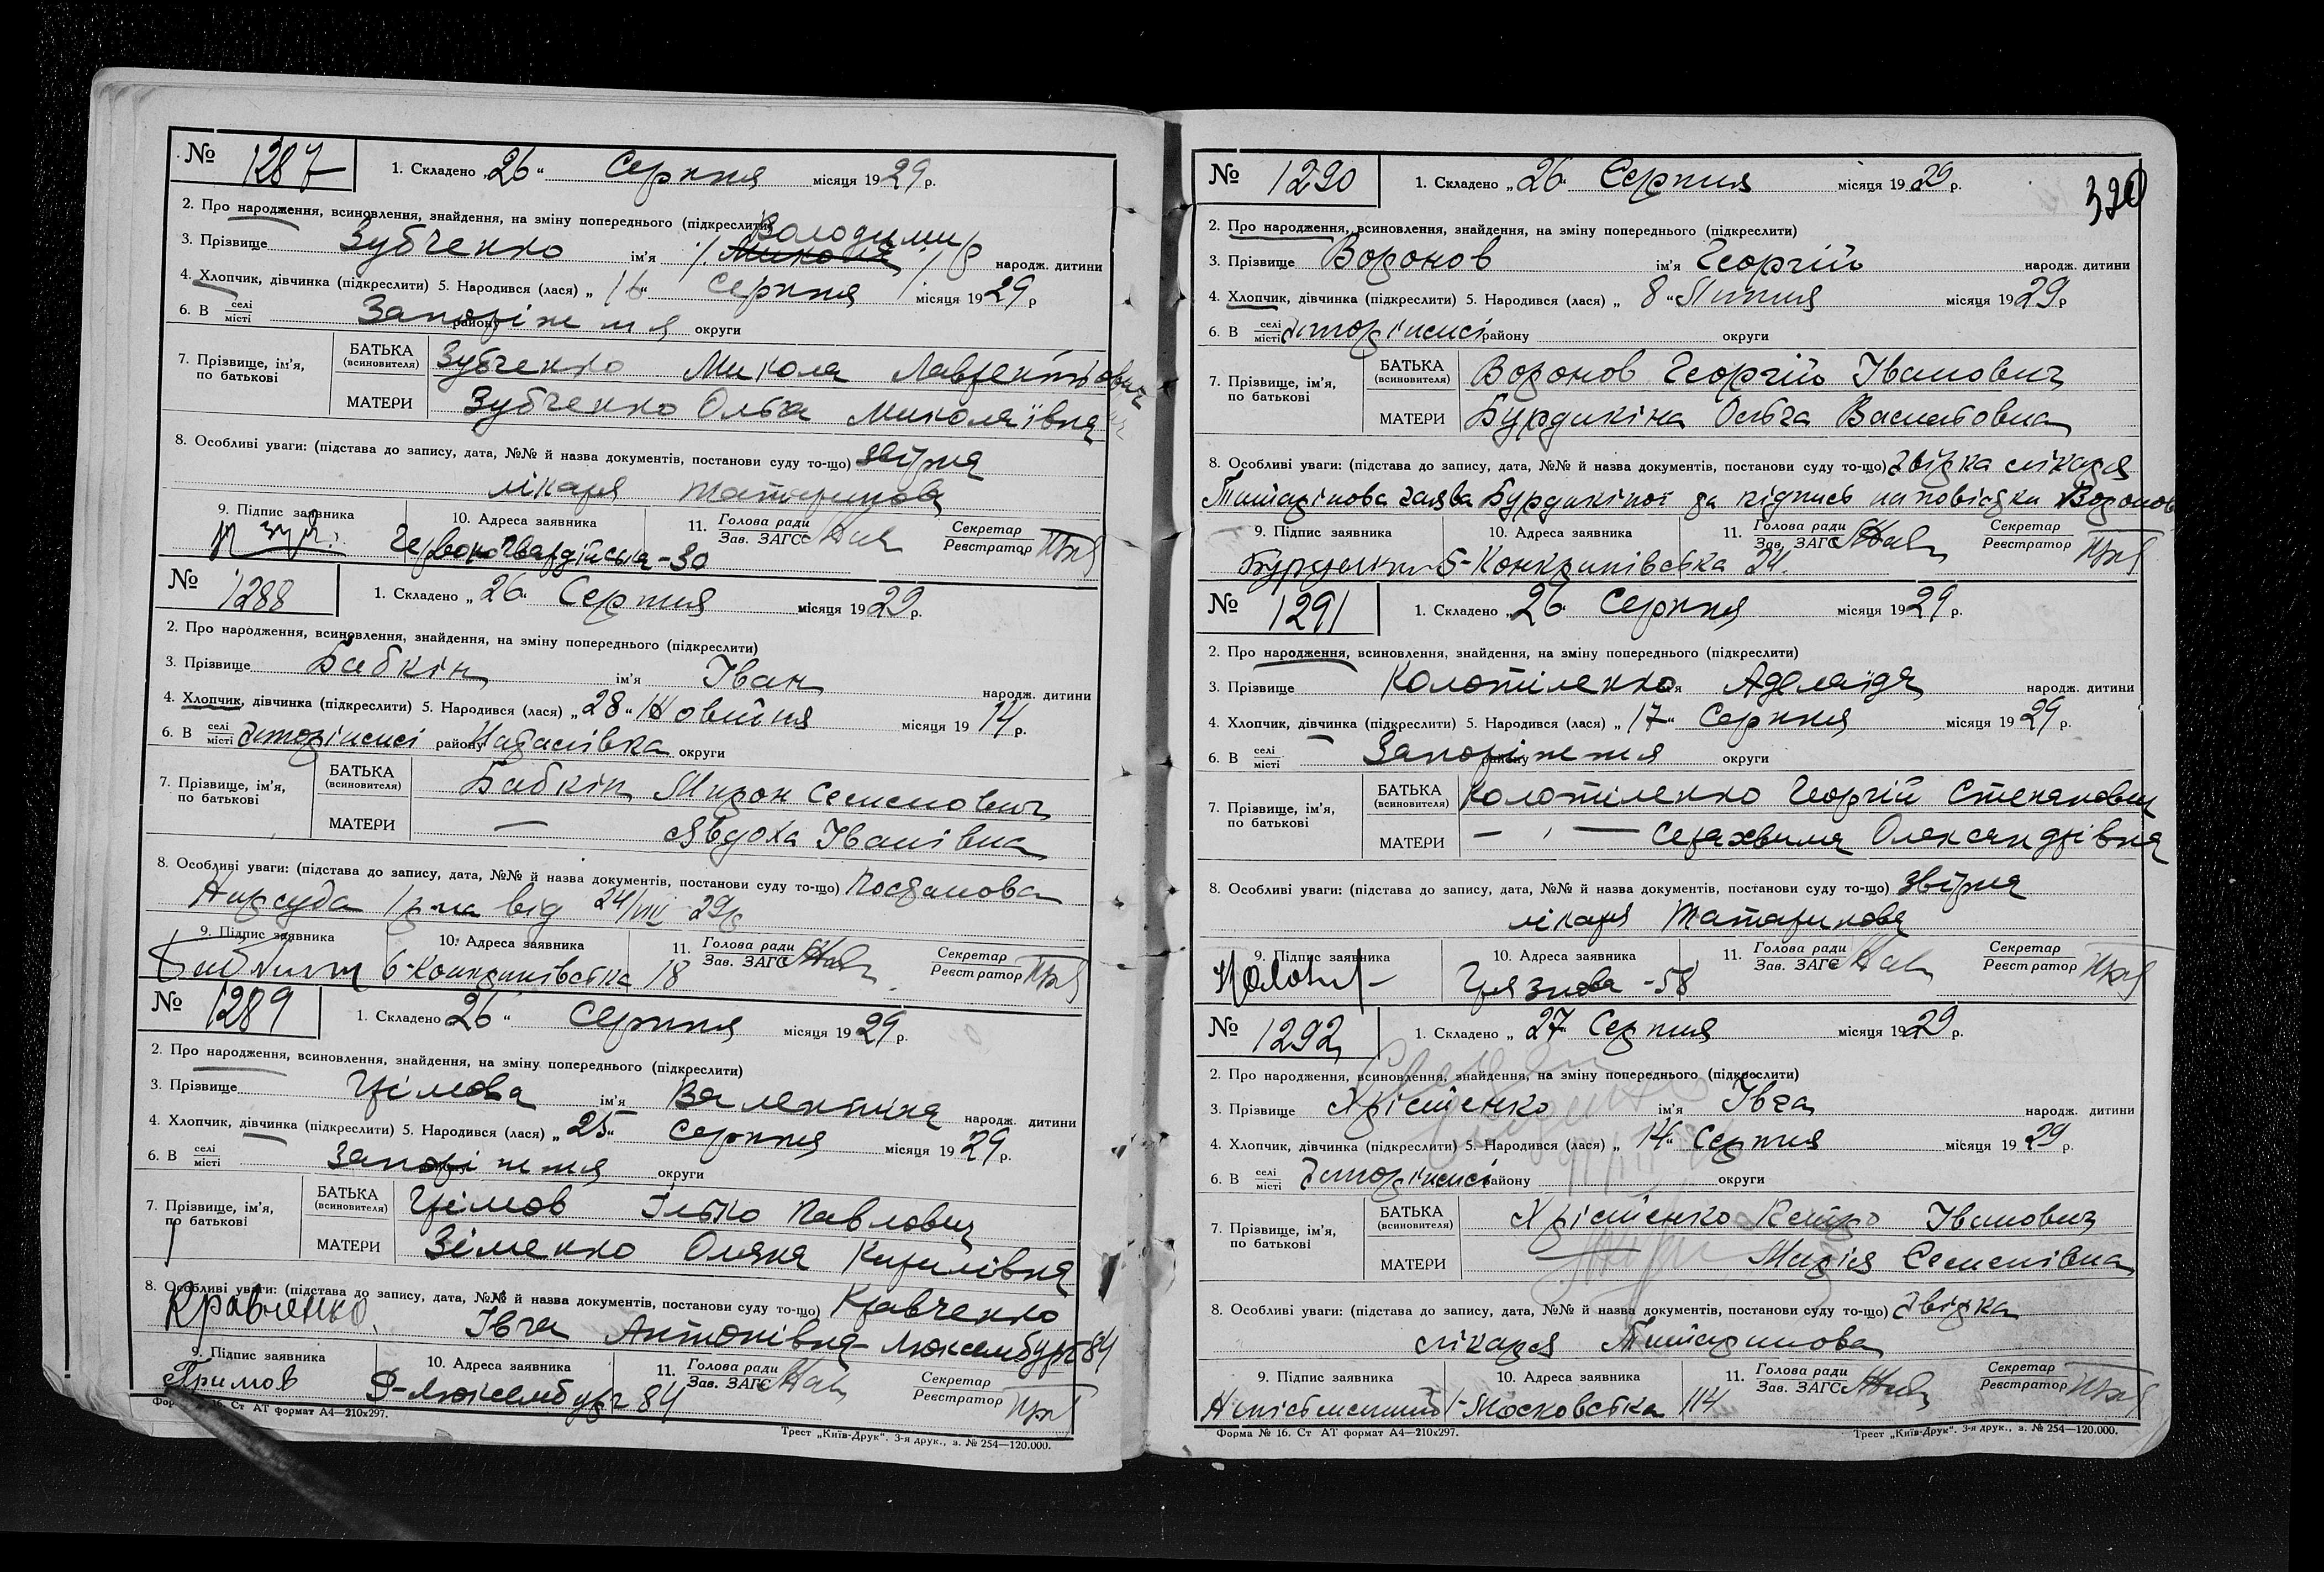 № 1287 1. Складено „26“ Серпня місяця 1929 р.
2. Про народження, всиновлення, знайдення, на зміну попереднього (підкреслити)
Володими
3. Прізвище Зубченко ім'я Микола народж. дитини
4. Хлопчик, дівчинка (підкреслити) 5. Народився (лася) „16“ Серпня місяця 1929 р
6. В селі місті Запоріжжя району округи
7. Прізвище, ім'я, по батькові БАТЬКА (всиновителя) Зубченко Микола Лаврентьович
МАТЕРИ Зубченко Ольга Миколаївна
8. Особливі уваги: (підстава до запису, дата, №№ й назва документів, постанови суду то-що) звірка
лікаря Татаринова
9. Підпис заявника 10. Адреса заявника 11. Голова ради Зав. ЗАГС Секретар Реєстратор
Червоногвардійська-30
№ 1288 1. Складено „26“ Серпня місяця 1929 р.
2. Про народження, всиновлення, знайдення, на зміну попереднього (підкреслити)
3. Прізвище Бабкін ім'я Іван народж. дитини
4. Хлопчик, дівчинка (підкреслити) 5. Народився (лася) „28“ Жовтня місяця 1914 р.
6. В селі місті Запоріжжі району округи
7. Прізвище, ім'я, по батькові БАТЬКА (всиновителя) Бабкін Мирон Семенович
МАТЕРИ — Явдоха Іванівна
8. Особливі уваги: (підстава до запису, дата, №№ й назва документів, постанови суду то-що) Постанова
Нарсуда 1 р-на від 24/VIII 29р
9. Підпис заявника 10. Адреса заявника 11. Голова ради Зав. ЗАГС Секретар Реєстратор
6-Кондратівська 18
№ 1289 1. Складено 26“ Серпня місяця 1929 р.
2. Про народження, всиновлення, знайдення, на зміну попереднього (підкреслити)
3. Прізвище Грімова ім'я Валентина народж. дитини
4. Хлопчик, дівчинка (підкреслити) 5. Народився (лася) „25“ Серпня місяця 1929 р.
6. В селі місті Запоріжжя округи
7. Прізвище, ім'я, по батькові БАТЬКА (всиновителя) Грімов Ілько Павлович
МАТЕРИ Зіменко Олена Кирилівна
8. Особливі уваги: (підстава до запису, дата, №№ й назва документів, постанови суду то-що) Кравченко
Кравченко Івга Антонівна Люксембург 84
9. Підпис заявника 10. Адреса заявника 11. Голова ради Зав. ЗАГС Секретар Реєстратор
Гримов Р-Люксембург 84
Форма № 16. Ст АТ формат А4—210х297.
Трест „Київ-Друк“. 3-я друк., з. № 254—120.000.
320
№ 1290 1. Складено „26“ Серпня місяця 1929 р.
2. Про народження, всиновлення, знайдення, на зміну попереднього (підкреслити)
3. Прізвище Воронов ім'я Георгій народж. дитини
4. Хлопчик, дівчинка (підкреслити) 5. Народився (лася) „8“ Липня місяця 1929 р
6. В селі місті Запоріжжі району округи
7. Прізвище, ім'я, по батькові БАТЬКА (всиновителя) Воронов Георгій Іванович
МАТЕРИ Бурдикіна Ольга Василовна
8. Особливі уваги: (підстава до запису, дата, №№ й назва документів, постанови суду то-що) звірка лікаря
Татарінова заява Бурдикіної да підпись на повістки Воронов
9. Підпис заявника 10. Адреса заявника 11. Голова ради Зав. ЗАГС Секретар Реєстратор
6-Кондратівська 24.
№ 1291 1. Складено „26“ Серпня місяця 1929 р.
2. Про народження, всиновлення, знайдення, на зміну попереднього (підкреслити)
3. Прізвище Колотіленко ім'я Аделаїда народж. дитини
4. Хлопчик, дівчинка (підкреслити) 5. Народився (лася) „17“ Серпня місяця 1929 р.
6. В селі місті Запоріжжя району округи
7. Прізвище, ім'я, по батькові БАТЬКА (всиновителя) Колотіленко Георгій Степанович
МАТЕРИ — " — Серахвима Олександрівна
8. Особливі уваги: (підстава до запису, дата, №№ й назва документів, постанови суду то-що) звірка
лікаря Татаринова
9. Підпис заявника 10. Адреса заявника 11. Голова ради Зав. ЗАГС Секретар Реєстратор
Грязнова -58
№ 1292 1. Складено „27“ Серпня місяця 1929 р.
2. Про народження, всиновлення, знайдення, на зміну попереднього (підкреслити)
3. Прізвище Хрістенко ім'я Івга народж. дитини
4. Хлопчик, дівчинка (підкреслити) 5. Народився (лася) „14“ Серпня місяця 1929 р.
6. В селі місті Запоріжжі району округи
7. Прізвище, ім'я, по батькові БАТЬКА (всиновителя) Хрістенко Петро Іванович
МАТЕРИ — Марія Семенівна
8. Особливі уваги: (підстава до запису, дата, №№ й назва документів, постанови суду то-що) звірка
лікаря Татаринова
9. Підпис заявника 10. Адреса заявника 11. Голова ради Зав. ЗАГС Секретар Реєстратор
1-Московська 114
Форма № 16. Ст АТ формат А4—210х297.
Трест „Київ-Друк“. 3-я друк., з. № 254—120.000.